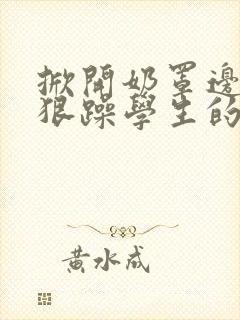 掀開奶罩邊
狠躁學生的
黃水成